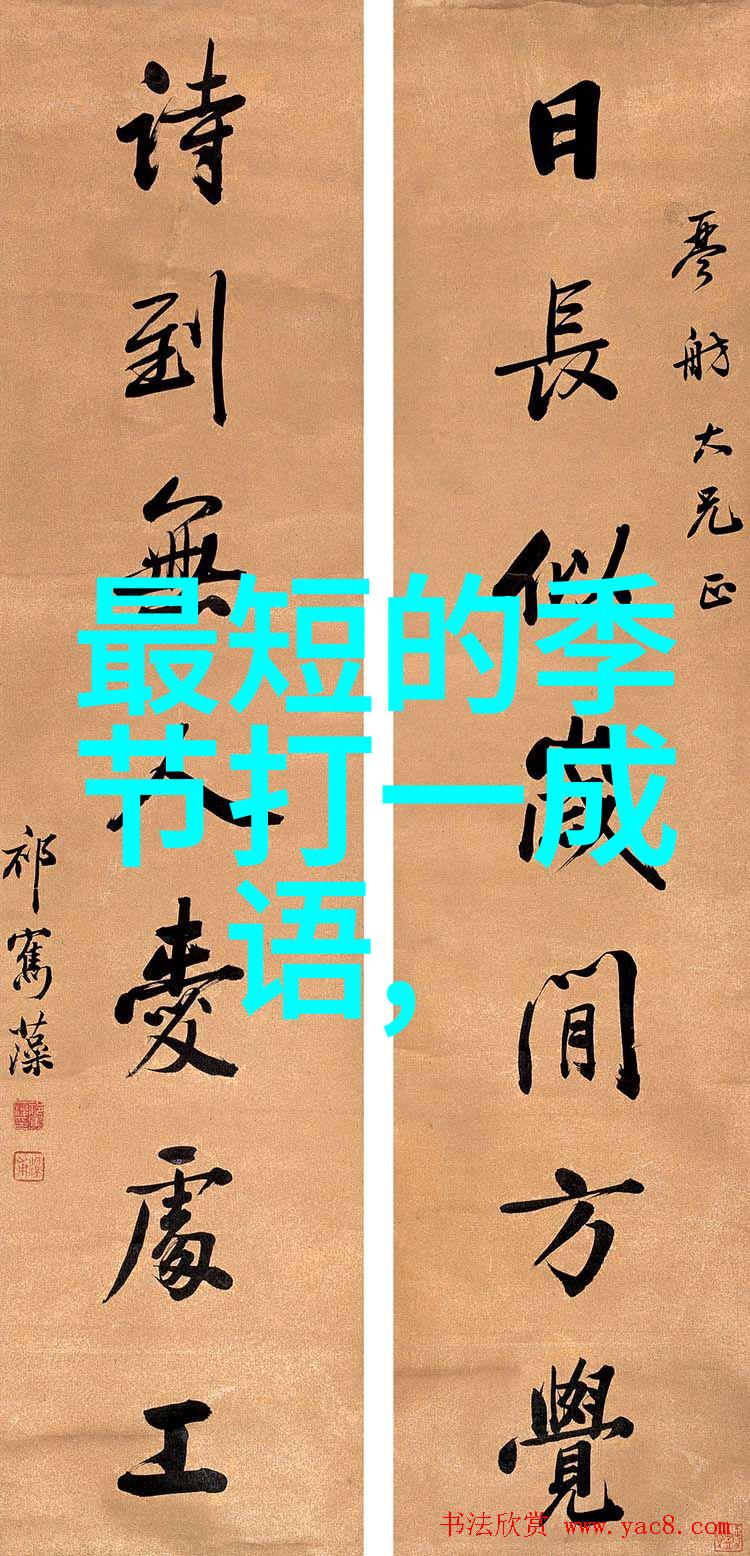 日長似歲閒方覺
琴舫大兄正
詩到無人愛處工
祁寯藻
最短的季
节打一成
语,
书法欣赏 www.yac8.com